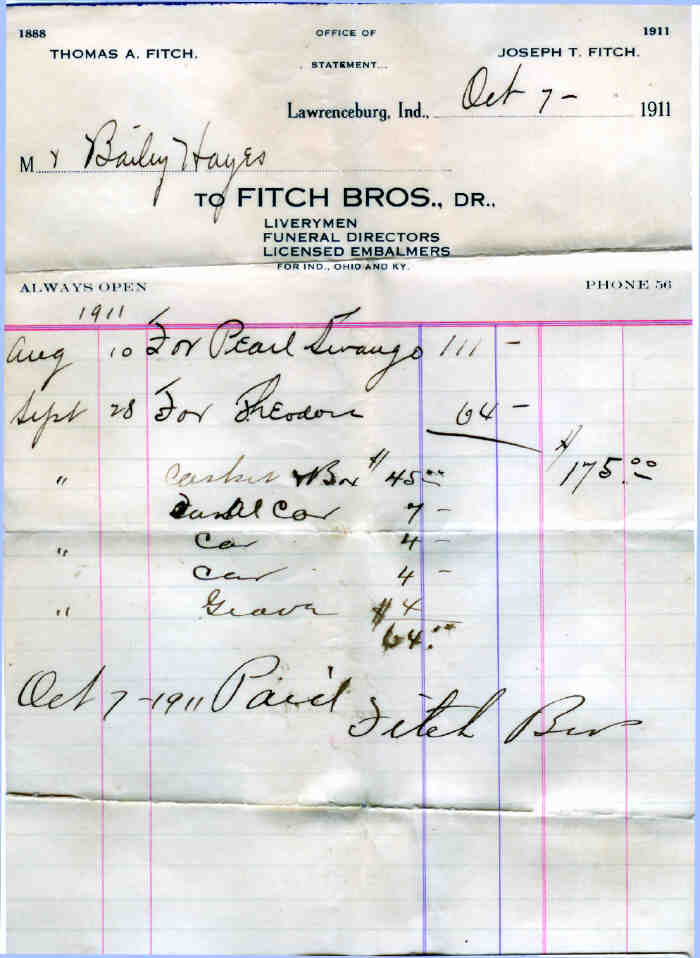 1888 OFFICE OF 1911
THOMAS A. FITCH. JOSEPH T. FITCH.
STATEMENT...
Lawrenceburg, Ind., Oct 7- 1911
Mr Bailey Hayes
TO FITCH BROS., DR.,
LIVERYMEN
FUNERAL DIRECTORS
LICENSED EMBALMERS
FOR IND., OHIO AND KY.
ALWAYS OPEN PHONE 56
1911
Aug 10 For Pearl Swango 111 -
Sept 28 For Theodore 64 -
$175.00
" Casket & Box $45.00
Car 7 -
" Car 4 -
Car 4 -
" Grave $4
64.00
Oct 7-1911 Paid Fitch Bros